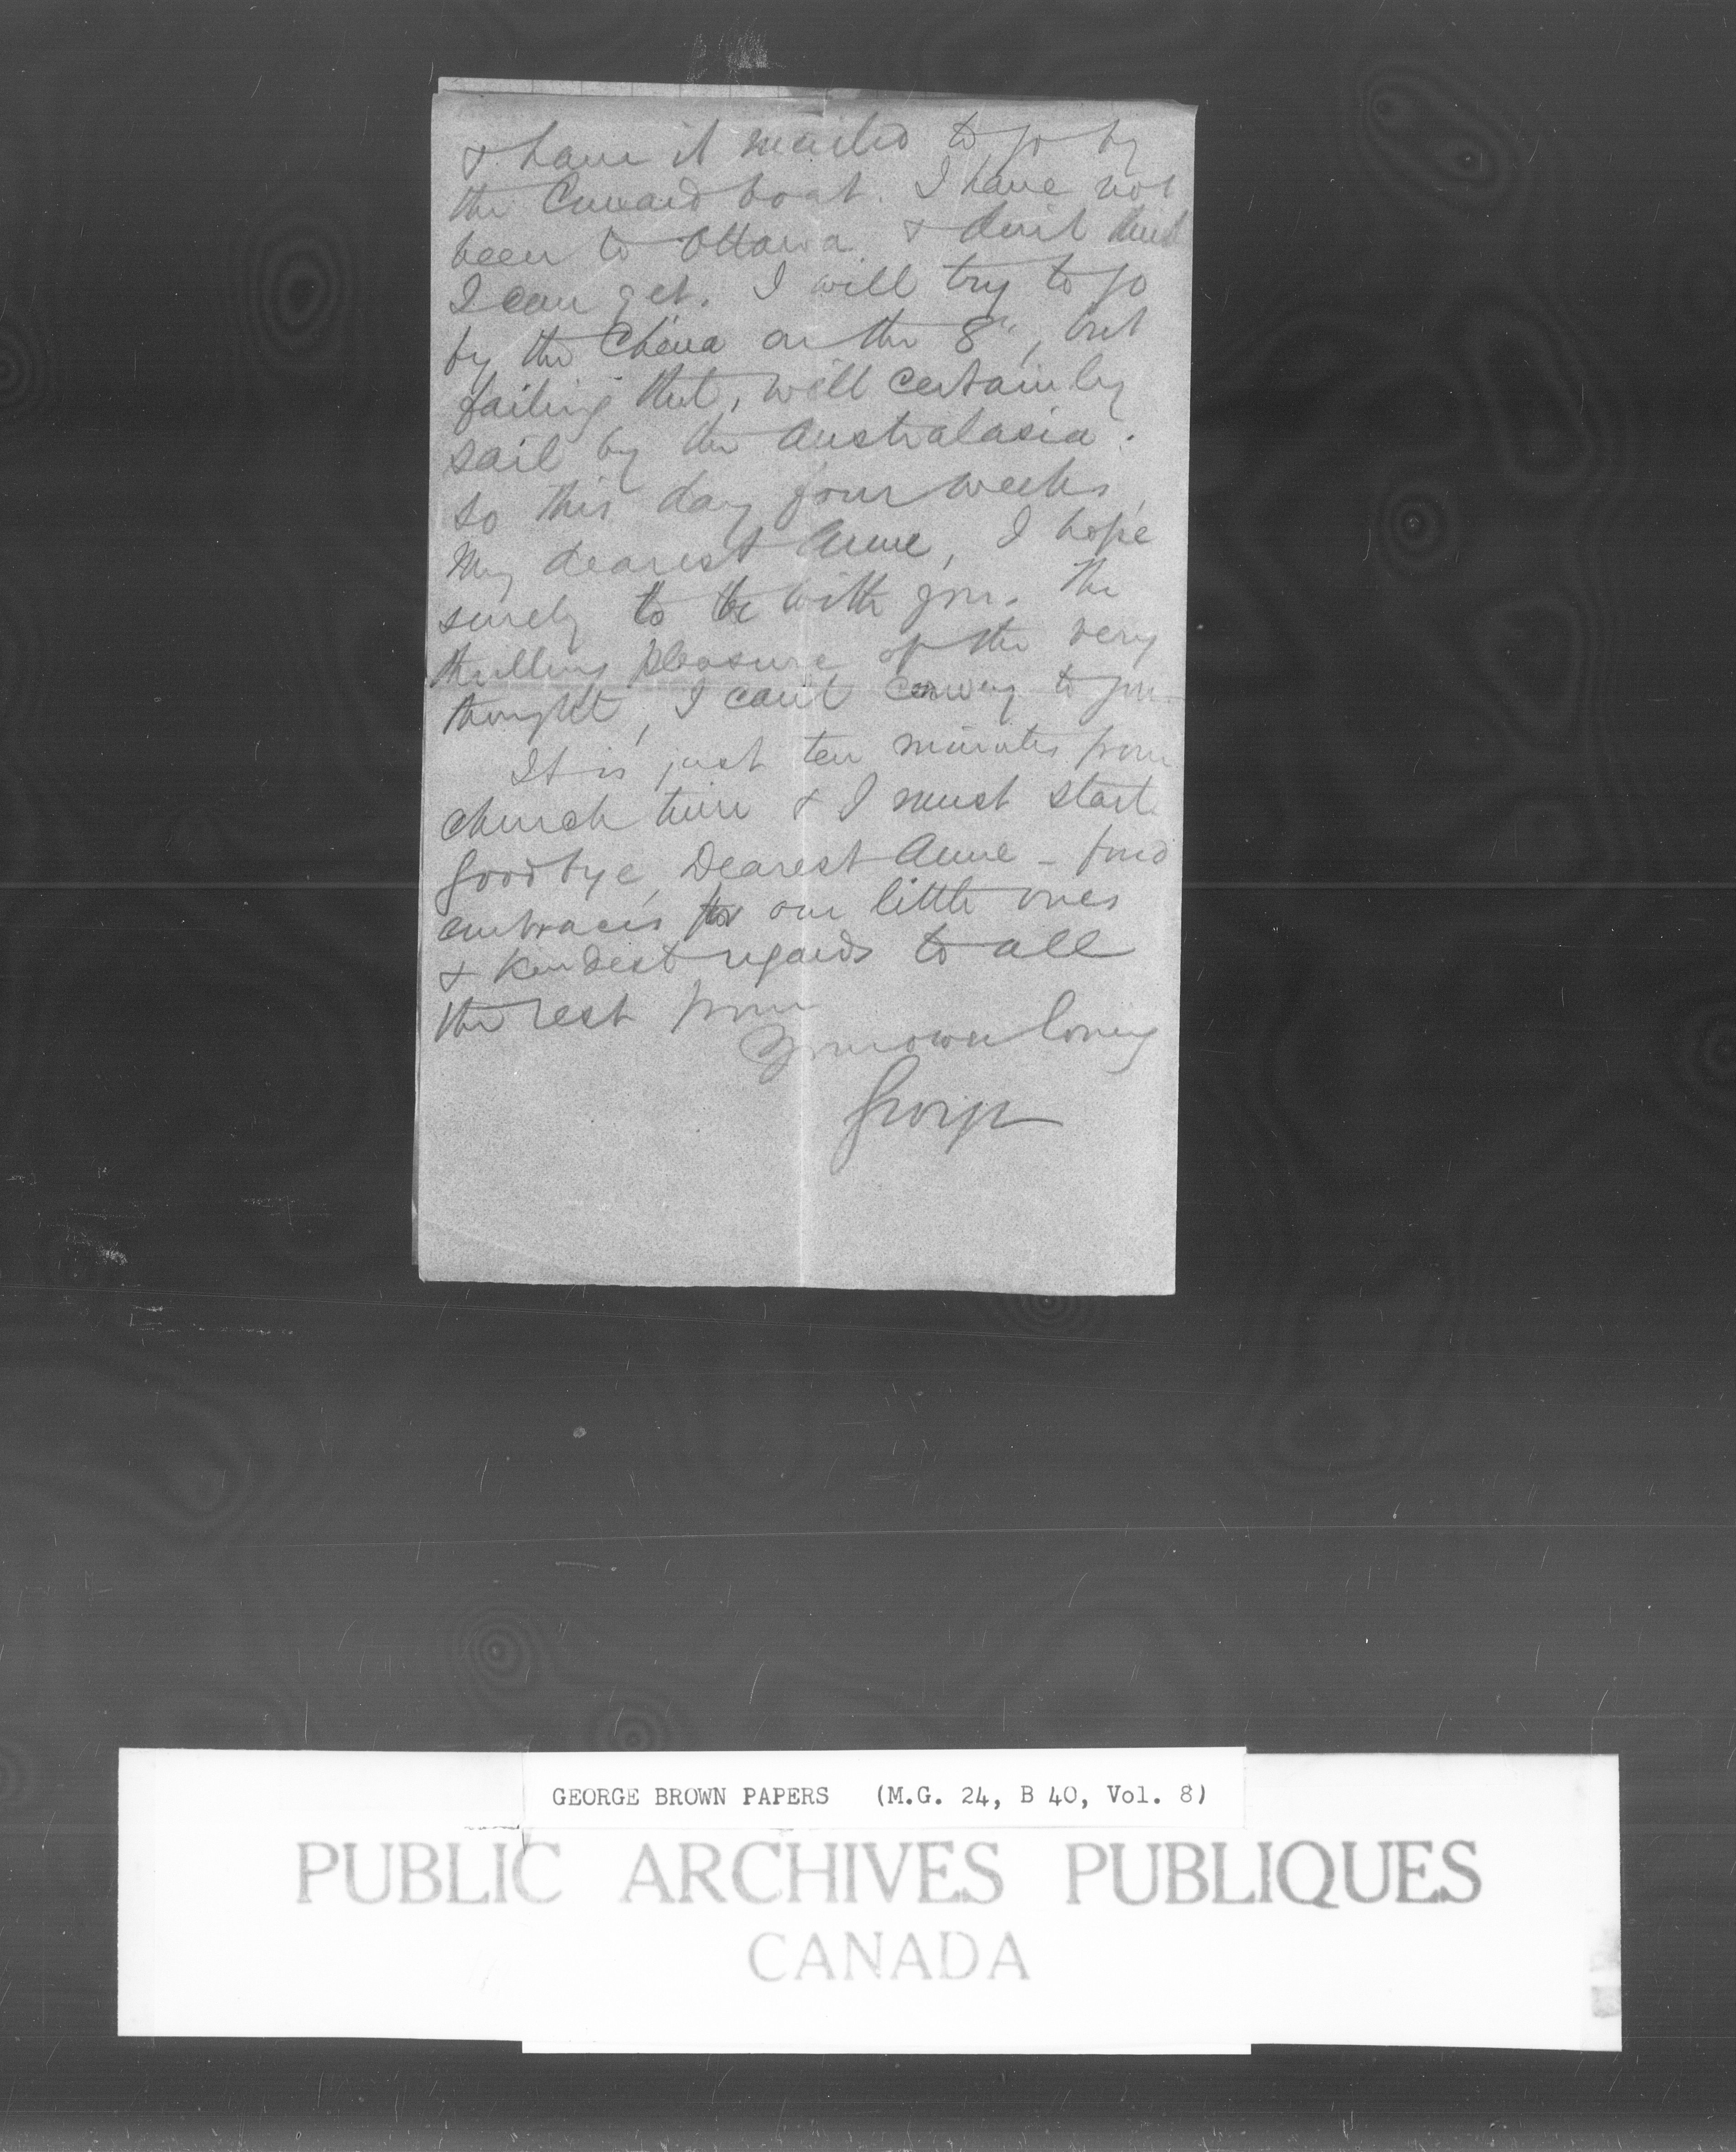 & have it mailed to go by
the Cunard boat. I have not
been to Ottawa & don't think
I can get. I will try to go
by the China on the 8", but
failing that, will certainly
sail by the Australasia.
So this day four weeks,
My dearest Anne, I hope
surely to be with you. The
thrilling pleasure of the very
thought, I can't convey to you.
It is just ten minutes from
church time & I must start.
Goodbye, Dearest Anne - fond
embraces for our little ones
& kindest regards to all
the rest from
Your own loving
George
GEORGE BROWN PAPERS (M.G. 24, B 40, Vol. 8)
PUBLIC ARCHIVES PUBLIQUES
CANADA